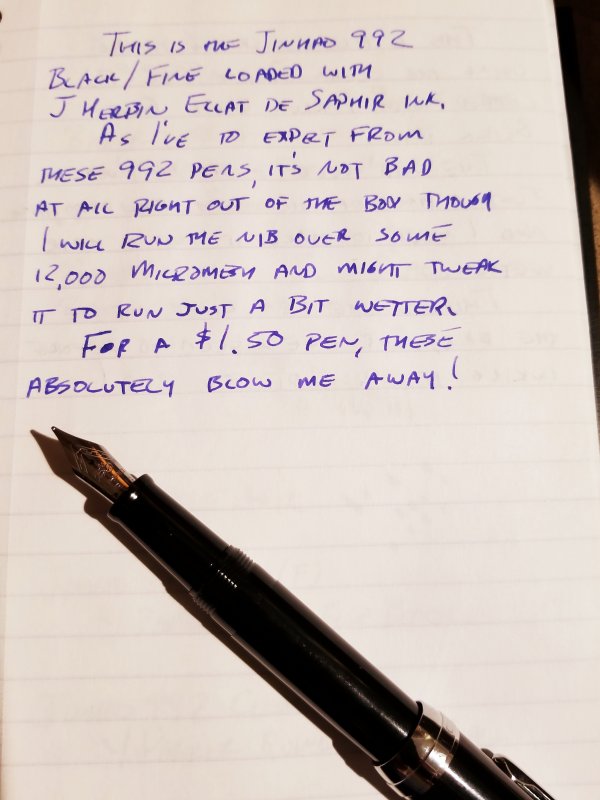 THIS IS THE JINHAO 992
BLACK/FINE LOADED WITH
J HERBIN ECLAT DE SAPHIR INK.
AS I'VE TO EXPECT FROM
THESE 992 PENS, IT'S NOT BAD
AT ALL RIGHT OUT OF THE BOX THOUGH
I WILL RUN THE NIB OVER SOME
12,000 MICROMESH AND MIGHT TWEAK
IT TO RUN JUST A BIT WETTER.
FOR A $1.50 PEN, THESE
ABSOLUTELY BLOW ME AWAY!